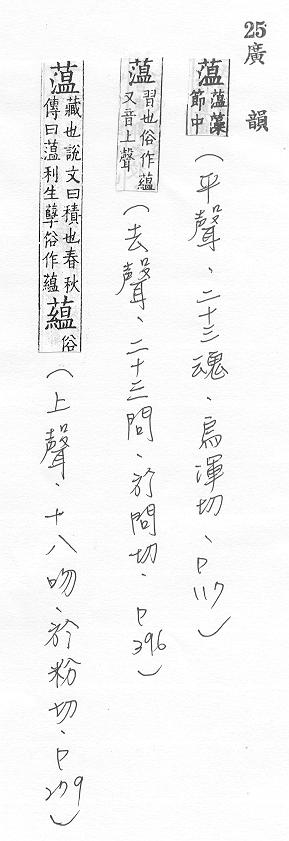 25廣韻
薀 薀藻節中(平聲、二十三魂、烏渾切、P117)
薀 習也俗作蘊又音上聲(去聲、二十三問、於問切、P396)
薀 藏也說文曰積也春秋傳曰薀利生孽俗作蘊 蘊 俗(上聲、十八吻、於粉切、P279)